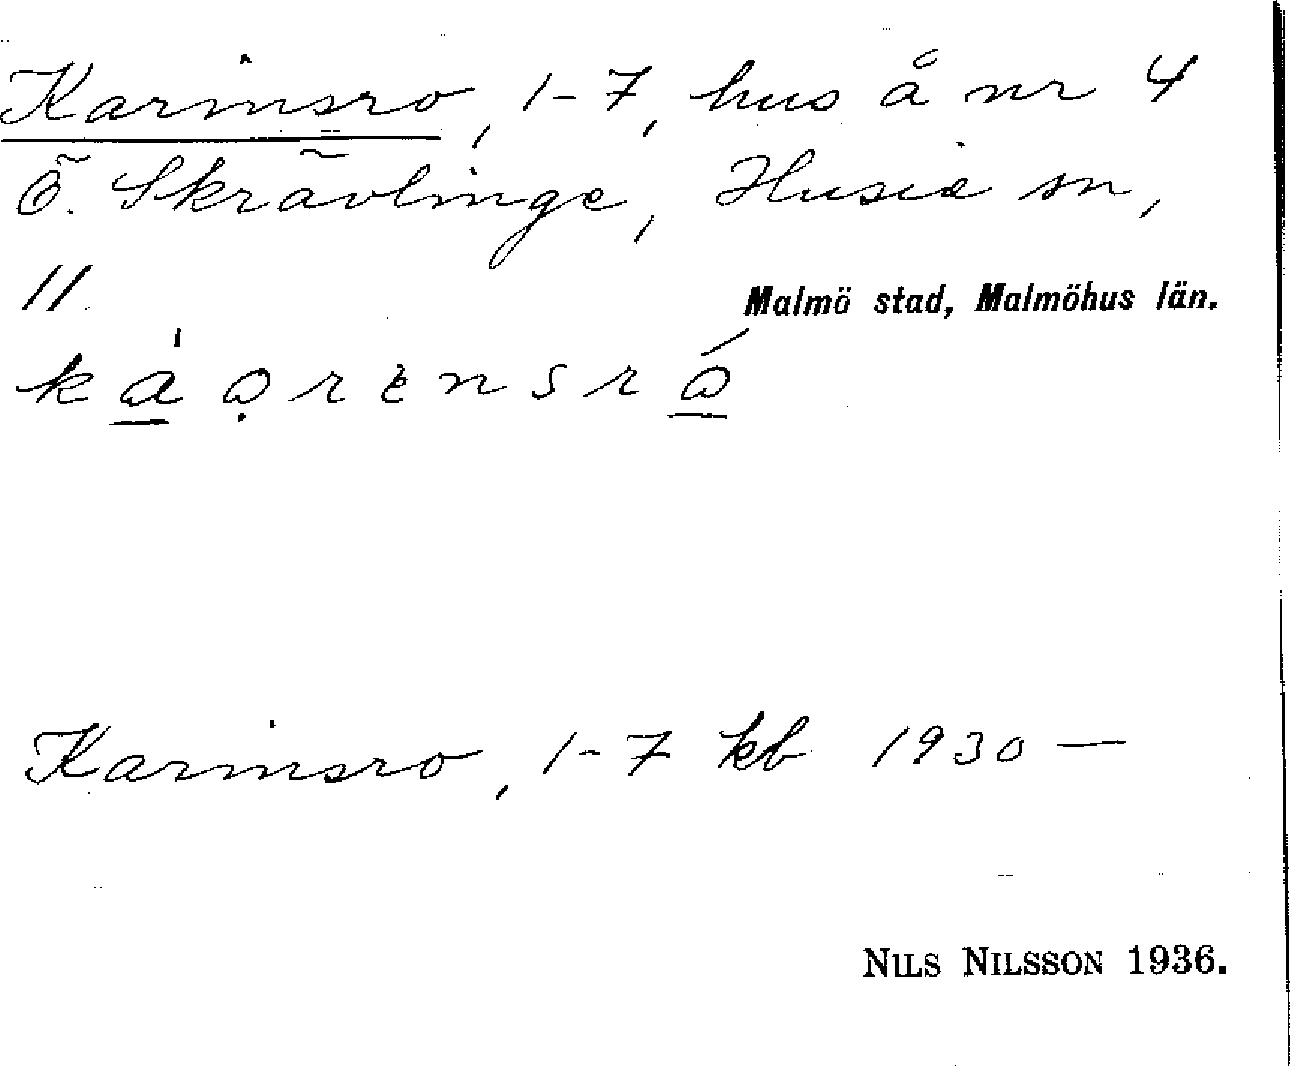 Karinsro, 1-7, hus å nr 4
Ö. Skrävlinge, Husie sn,
11.
Malmö stad, Malmöhus län.
Karinsro, 1-7 kb 1930—
NILS NILSSON 1936.